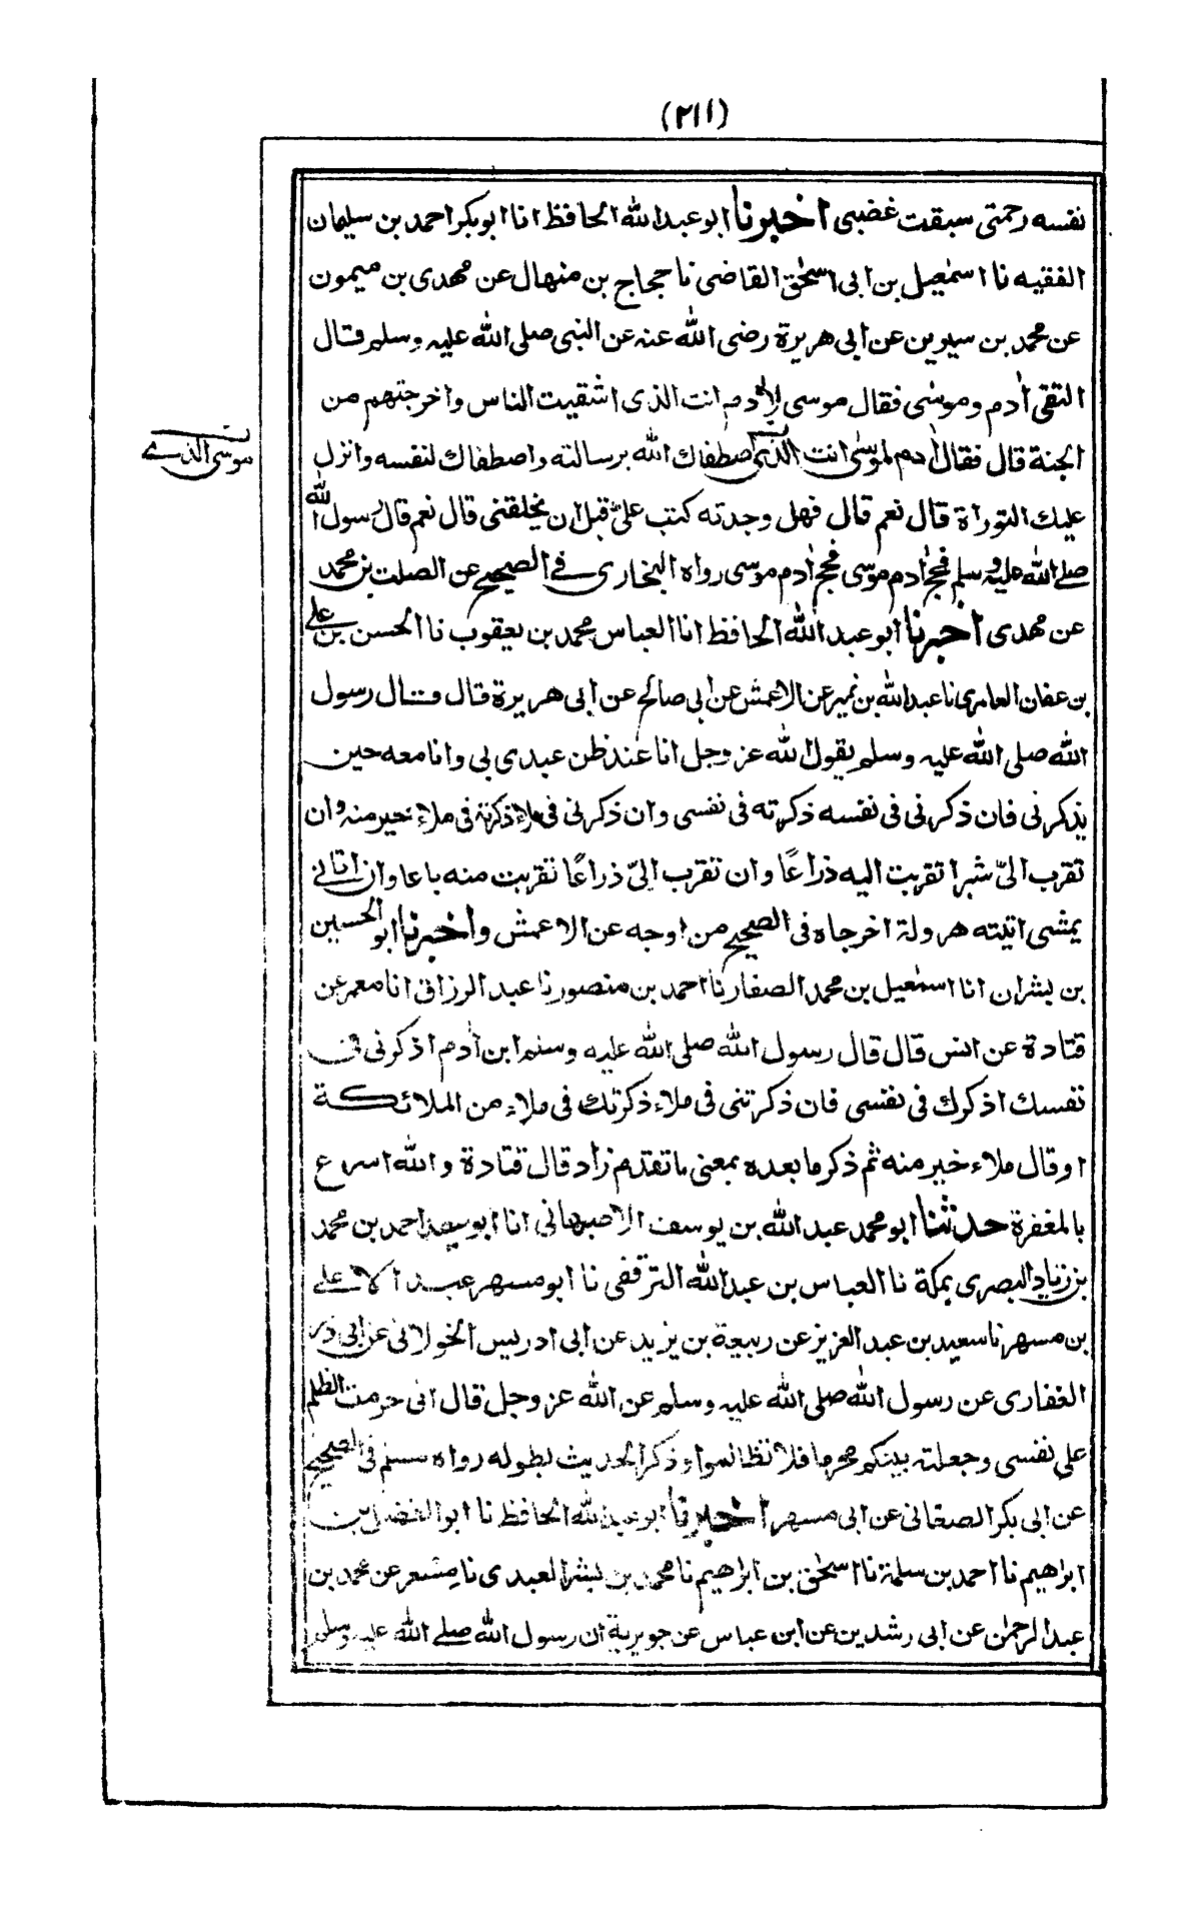 (٢١١)
نفسه رحمتى سبقت غضبى اخبرنا ابو عبد الله الحافظ انا ابو بكر احمد بن سليمان
الفقيه نا اسمٰعيل بن ابى اسحٰق القاضى نا حجاج بن منهال عن مهدى بن ميمون
عن محمد بن سيرين عن ابى هريرة رضى الله عنه عن النبى صلى الله عليه وسلم قال
التقى اٰدم وموسٰى فقال موسى لاٰدم انت الذى اشقيت الناس واخرجتهم من
الجنة قال فقال اٰدم لموسٰى انت الذى اصطفاك الله برسالته واصطفاك لنفسه وانزل
موسى الذى
عليك التوراة قال نعم قال فهل وجدته كتب علىّ قبل ان يخلقنى قال نعم قال رسول الله
صلى الله عليه وسلم فحج اٰدم موسى فحج اٰدم موسى رواه البخارى فى الصحيح عن الصلت بن محمد
عن مهدى اخبرنا ابو عبد الله الحافظ انا العباس محمد بن يعقوب نا الحسن بن على
بن عفان العامرى نا عبد الله بن نمير عن الاعمش عن ابى صالح عن ابى هريرة قال قال رسول
الله صلى الله عليه وسلم يقول الله عز وجل انا عند ظن عبدى بى وانا معه حين
يذكرنى فان ذكرنى فى نفسه ذكرته فى نفسى وان ذكرنى فى ملاء ذكرته فى ملاء خير منه وان
تقرب الىّ شبرا تقربت اليه ذراعًا وان تقرب الىّ ذراعًا تقربت منه باعا وان اتانى
يمشى اتيته هرولة اخرجاه فى الصحيح من اوجه عن الاعمش واخبرنا ابو الحسين
بن بشران انا اسمٰعيل بن محمد الصفار نا احمد بن منصور نا عبد الرزاق انا معمر عن
قتادة عن انس قال قال رسول الله صلى الله عليه وسلم ابن اٰدم اذكرنى فى
نفسك اذكرك فى نفسى فان ذكرتنى فى ملاء ذكرتك فى ملاء من الملائكة
او قال ملاء خير منه ثم ذكر ما بعده بمعنى ما تقدم زاد قال قتادة والله اسرع
بالمغفرة حدثنا ابو محمد عبد الله بن يوسف الاصبهانى انا ابو سعيد احمد بن محمد
بن زياد البصرى بمكة نا العباس بن عبد الله الترقفى نا ابو مسهر عبد الاعلى
بن مسهر نا سعيد بن عبد العزيز عن ربيعة بن يزيد عن ابى ادريس الخولانى عن ابى ذر
الغفارى عن رسول الله صلى الله عليه وسلم عن الله عز وجل قال انى حرمت الظلم
على نفسى وجعلته بينكم محرما فلا تظالموا وذكر الحديث بطوله رواه مسلم فى الصحيح
عن ابى بكر الصغانى عن ابى مسهر اخبرنا ابو عبد الله الحافظ نا ابو الفضل بن
ابراهيم نا احمد بن سلمة نا اسحٰق بن ابراهيم نا محمد بن بشر العبدى نا مسعر عن محمد بن
عبد الرحمٰن عن ابى رشدين عن ابن عباس عن جويرية ان رسول الله صلى الله عليه وسلم